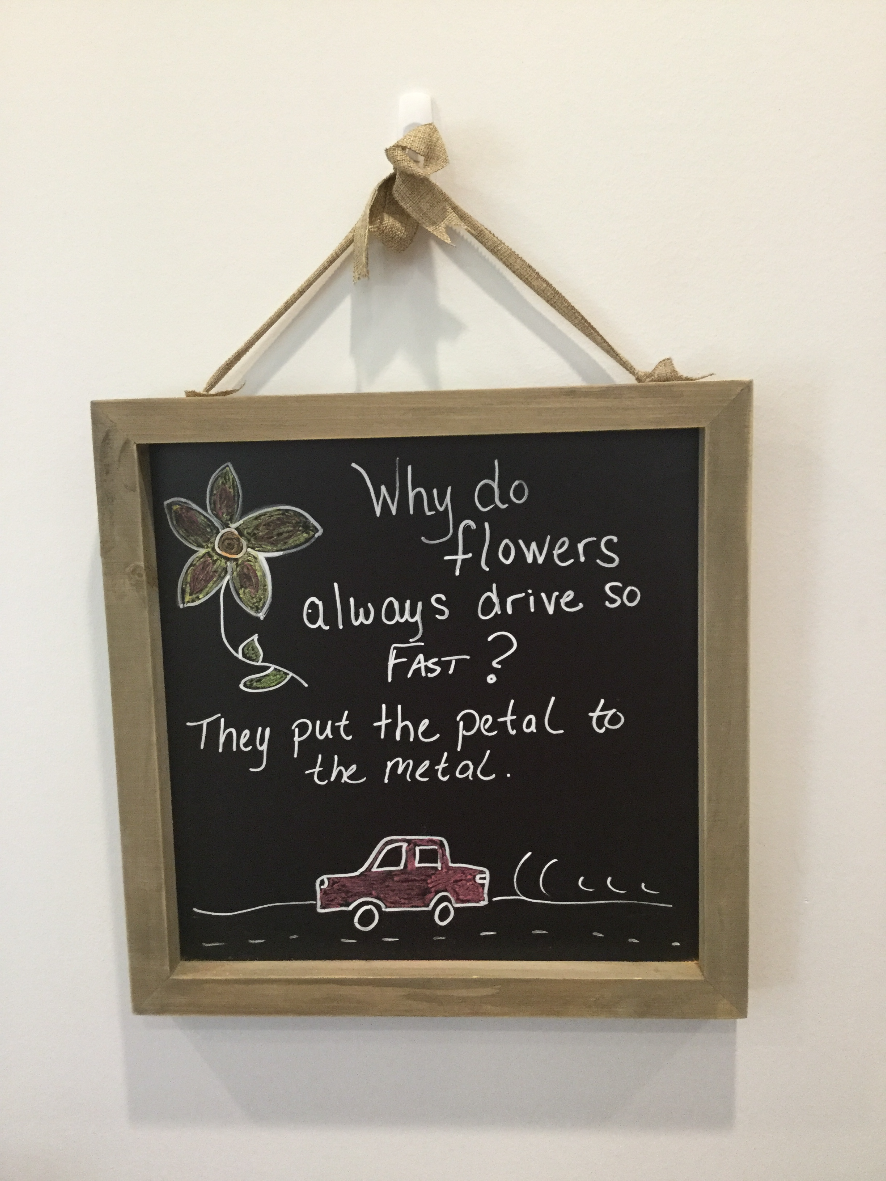 Why do
flowers
always drive so
FAST?
They put the petal to
the metal.